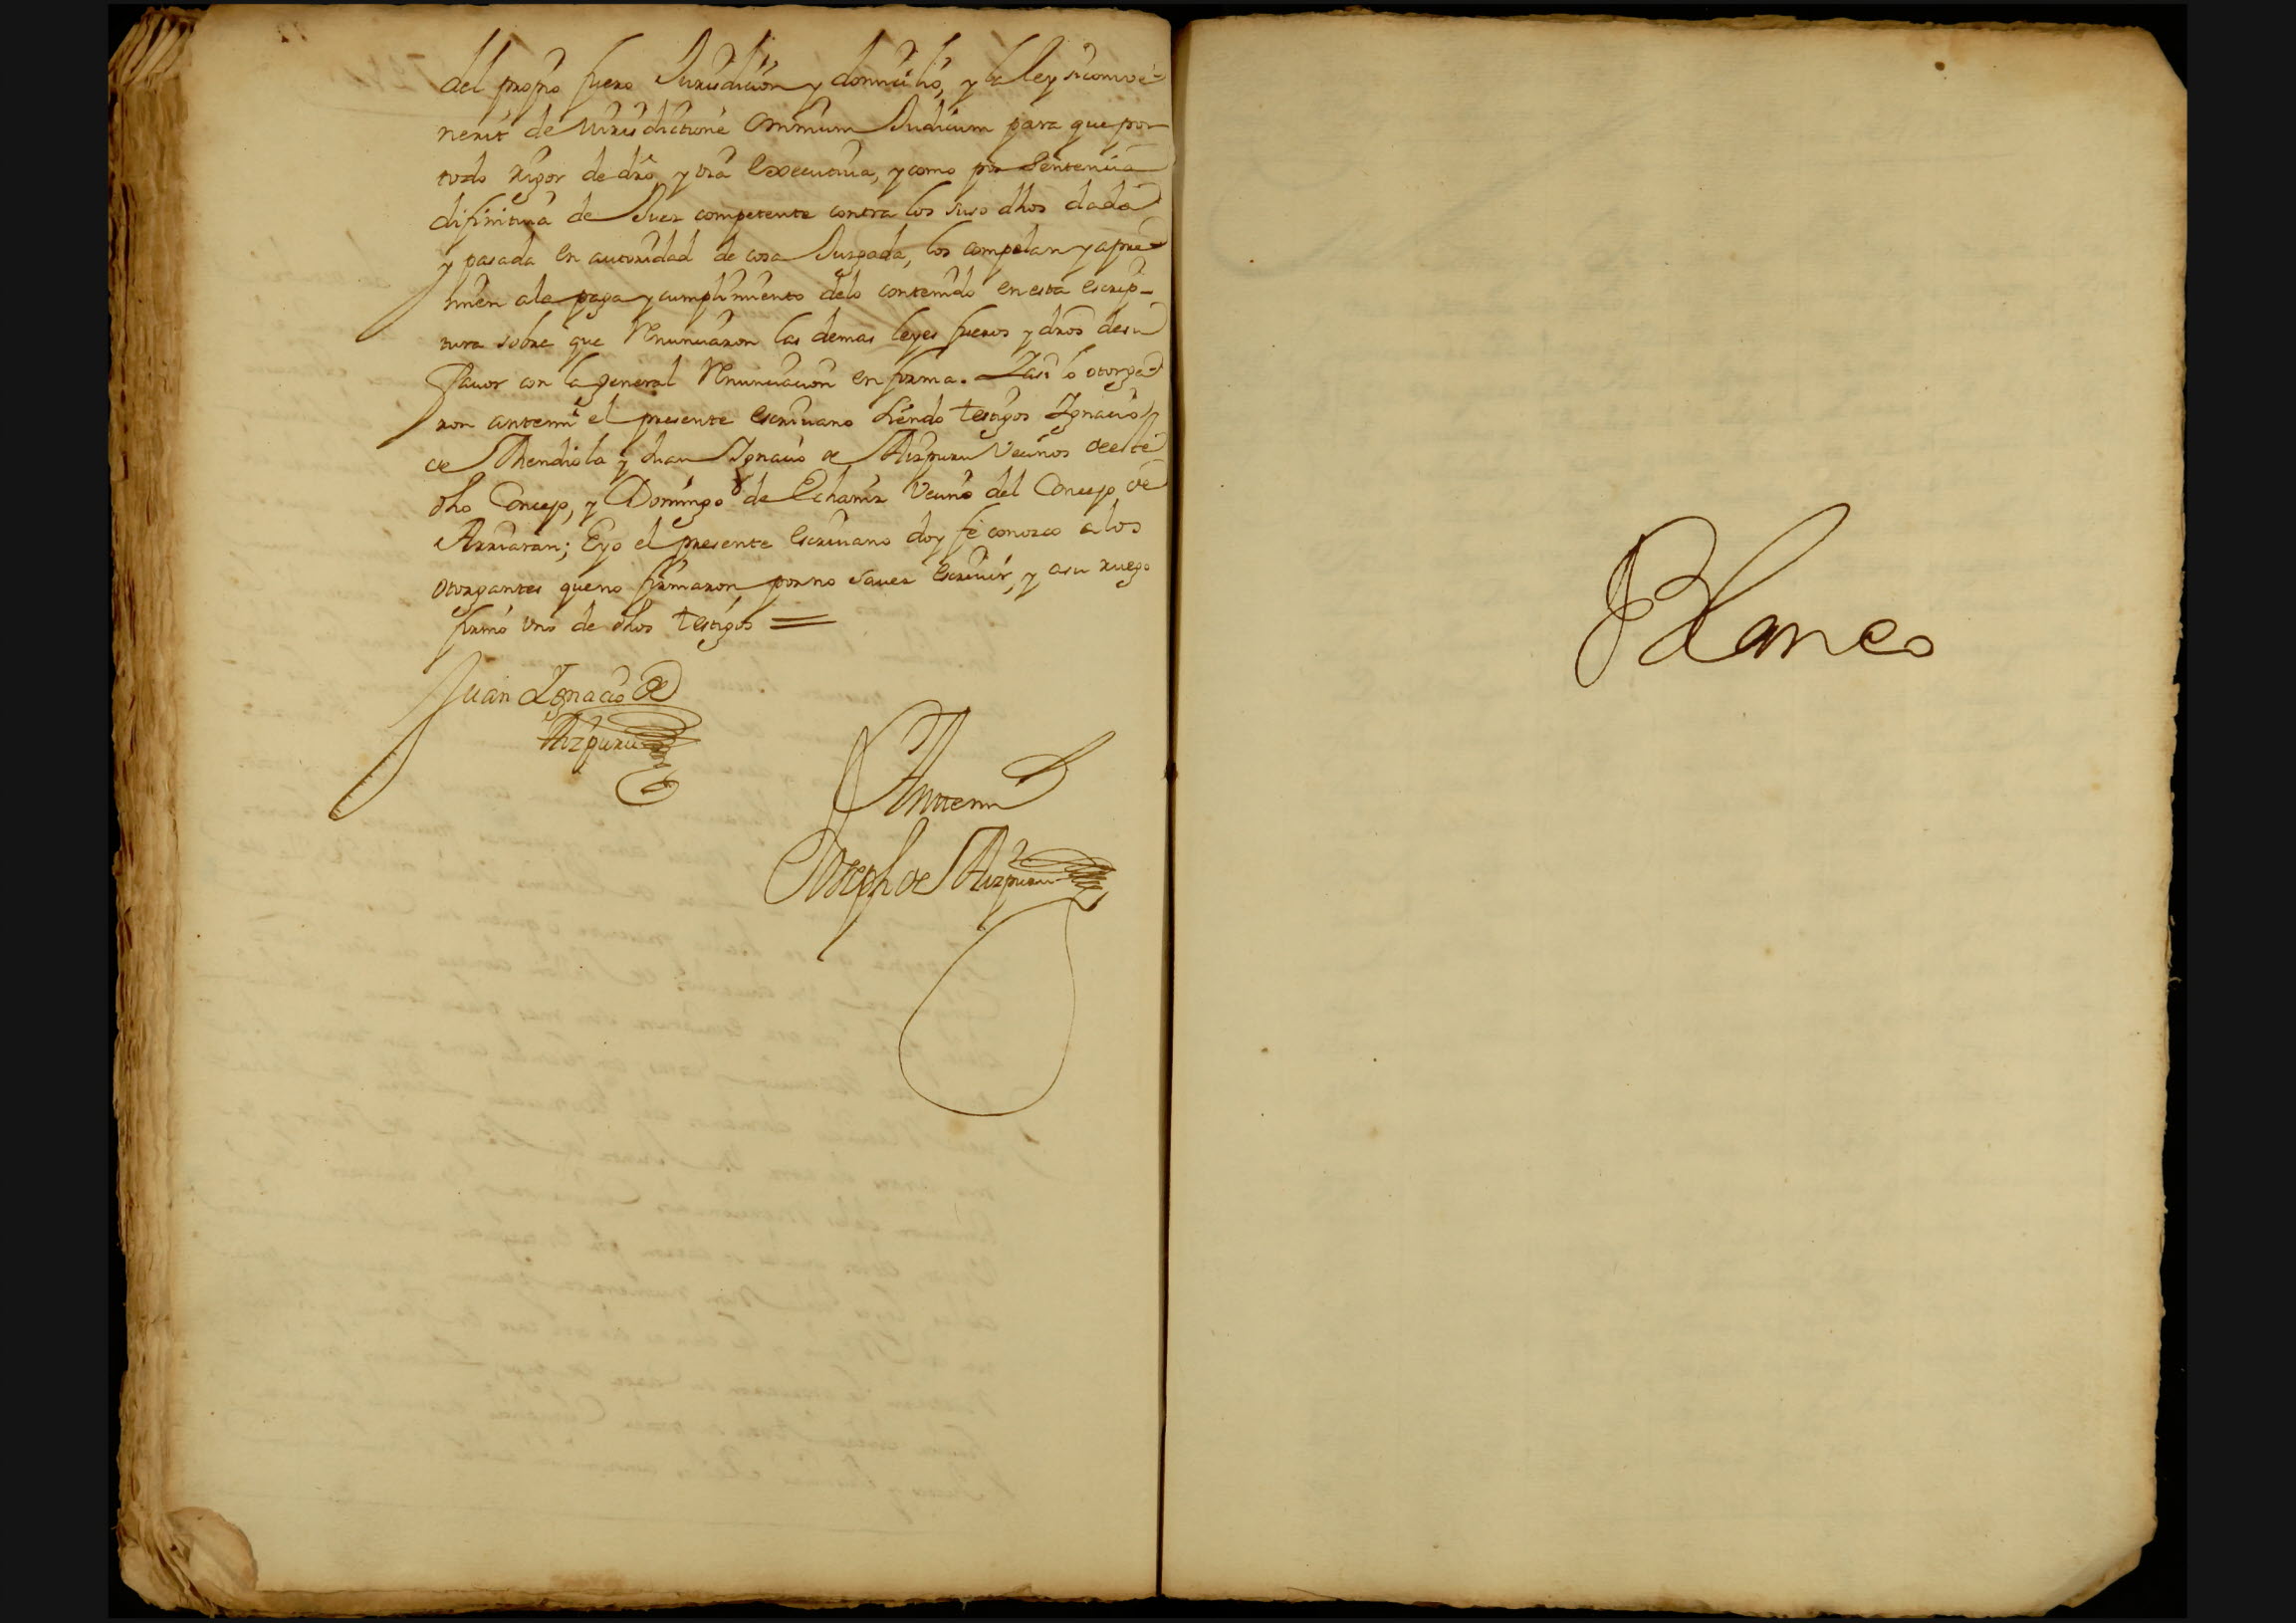 del propio fuero Jurisdicion y domicilio, y la ley siconve-
nerit de iurisdictione Omnium Judicum para que por
todo rigor de dro y via Executiua, y como por Sentencia
difinitiua de Juez competente contra los suso dhos dada
y pasada en autoridad de cosa Juzgada, los compelan y apre-
mien ala paga y cumplimiento delo contenido en esta escrip-
tura sobre que Renunciaron las demas leyes fueros y dros desu
fauor con la general Renunciacion en forma. Iasi lo otorga-
ron antemi el presente escriuano siendo testigos Ignacio
de Mendiola y Juan Ignacio de Aizpuru Vecinos deeste
dho Concejo, y Domingo de Echaniz Vecino del Concejo de
Arriaran; Eyo el presente escriuano doy fe conozco alos
otorgantes queno firmaron por no sauer escriuir, y asu ruego
firmó uno de dhos testigos =
Juan Ignacio de
Aizpuru
Anttemi
Joseph de Aizpuru
Blanco